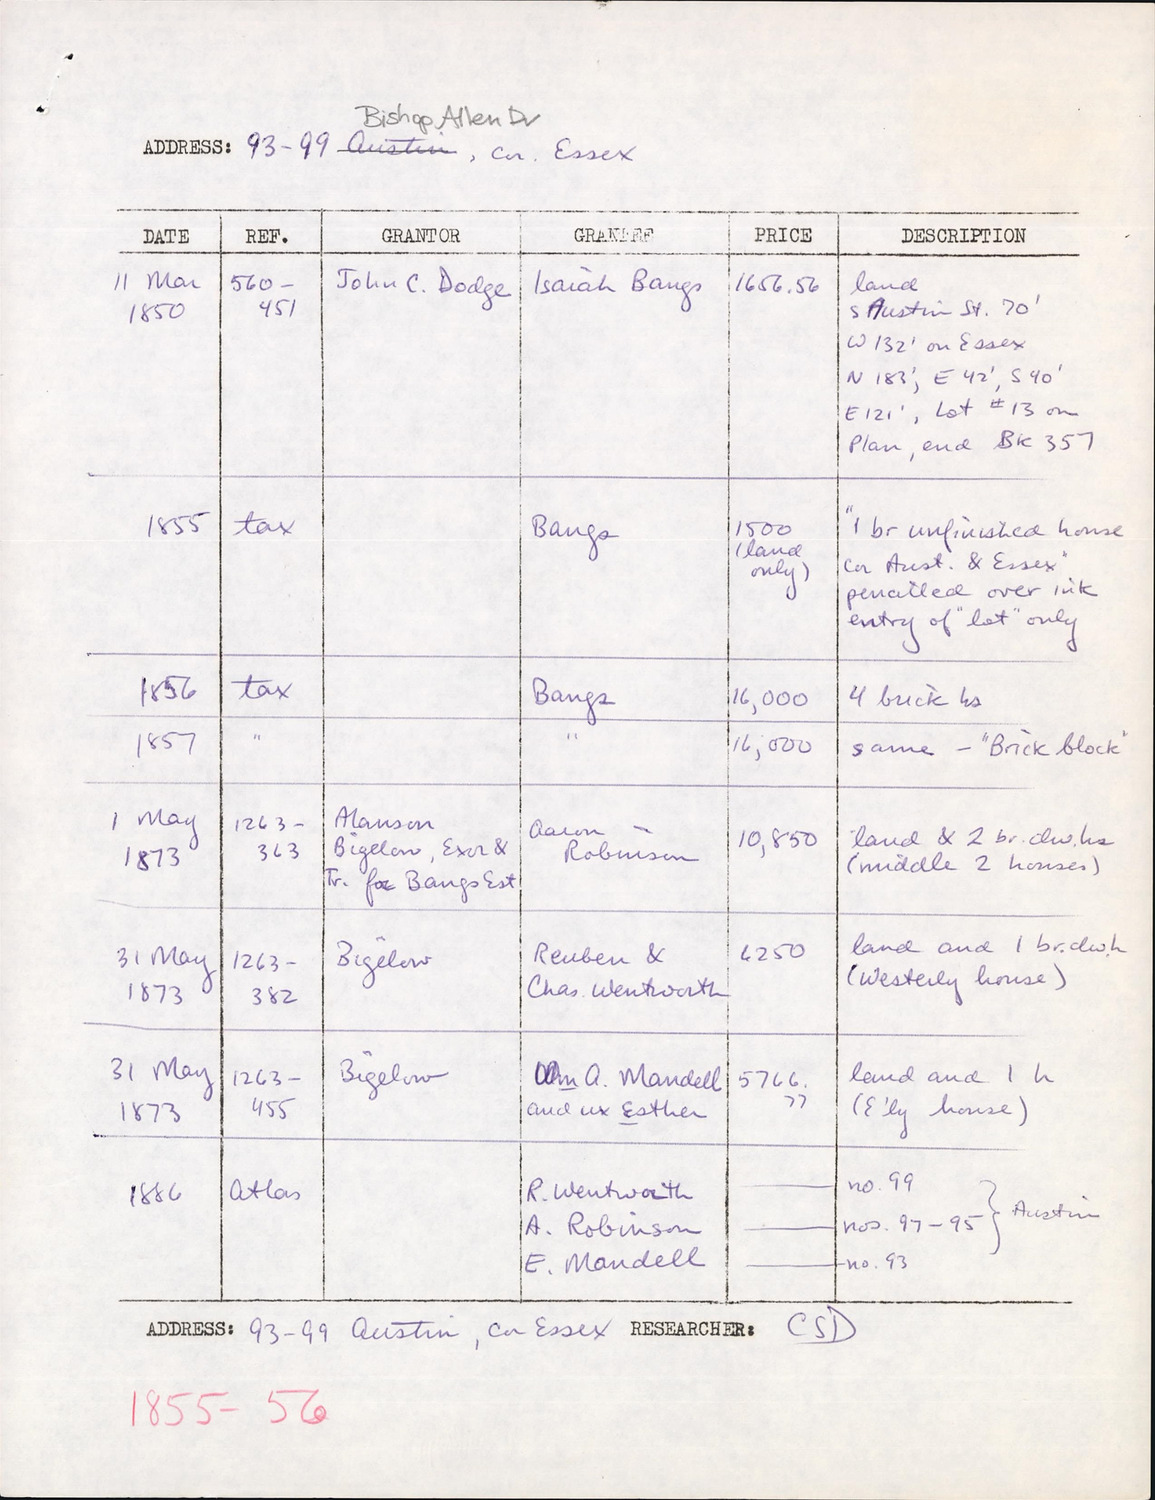 Bishop Allen Dr
ADDRESS: 93-99 Austin, cor. Essex
DATE REF. GRANTOR GRANTEE PRICE DESCRIPTION
11 Mar 560- John C. Dodge Isaiah Bangs 1656.56 land
1850 451 S Austin St. 70'
W 132' on Essex
N 183', E 42', S 40'
E 121', Lot #13 on
Plan, end Bk 357
1855 tax Bangs 1500 "1 br unfinished house
(land cor Aust. & Essex"
only) pencilled over ink
entry of "lot" only
1856 tax Bangs 16,000 4 brick hs
1857 " " 16,000 same - "Brick block"
1 May 1263- Alanson Aaron - 10,850 land & 2 br. dw. hs
1873 363 Bigelow, Exor & Robinson (middle 2 houses)
Tr. for Bangs Est
31 May 1263- Bigelow Reuben & 6250 land and 1 br. dw. h
1873 382 Chas. Wentworth (Westerly house)
31 May 1263- Bigelow Wm A. Mandell 5766. land and 1 h
1873 455 and ux Esther 77 (E'ly house)
1886 Atlas R. Wentworth — no. 99
A. Robinson — nos. 97-95 } Austin
E. Mandell — no. 93
ADDRESS: 93-99 Austin, cor Essex RESEARCHER: CSD
1855-56